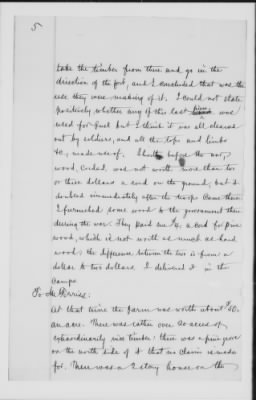 5
take the timber from there and go in the
direction of the fort, and I concluded that was the
use they were making of it. I could not state
positively whether any of this last pine was
used for fuel but I think it was all cleaned
out by soldiers, and all the tops and limbs
&c, made use of. Shortly before the war,
wood, corded, was not worth more than two
or three dollars a cord on the ground, but it
doubled immediately after the troops came there.
I furnished some wood to the government there
during the war. They paid me $4. a cord for pine
wood, which is not worth as much as hard
wood: the difference between the two is from a
dollar to two dollars. I delivered it in the
camps.
To Mr.
At that time the farm was worth about $50.
an acre. There was rather over 20 acres of
extraordinarily nice timber: there was a pine grove
on the north side of it that no claim is made
for. There was a 2 story house on the